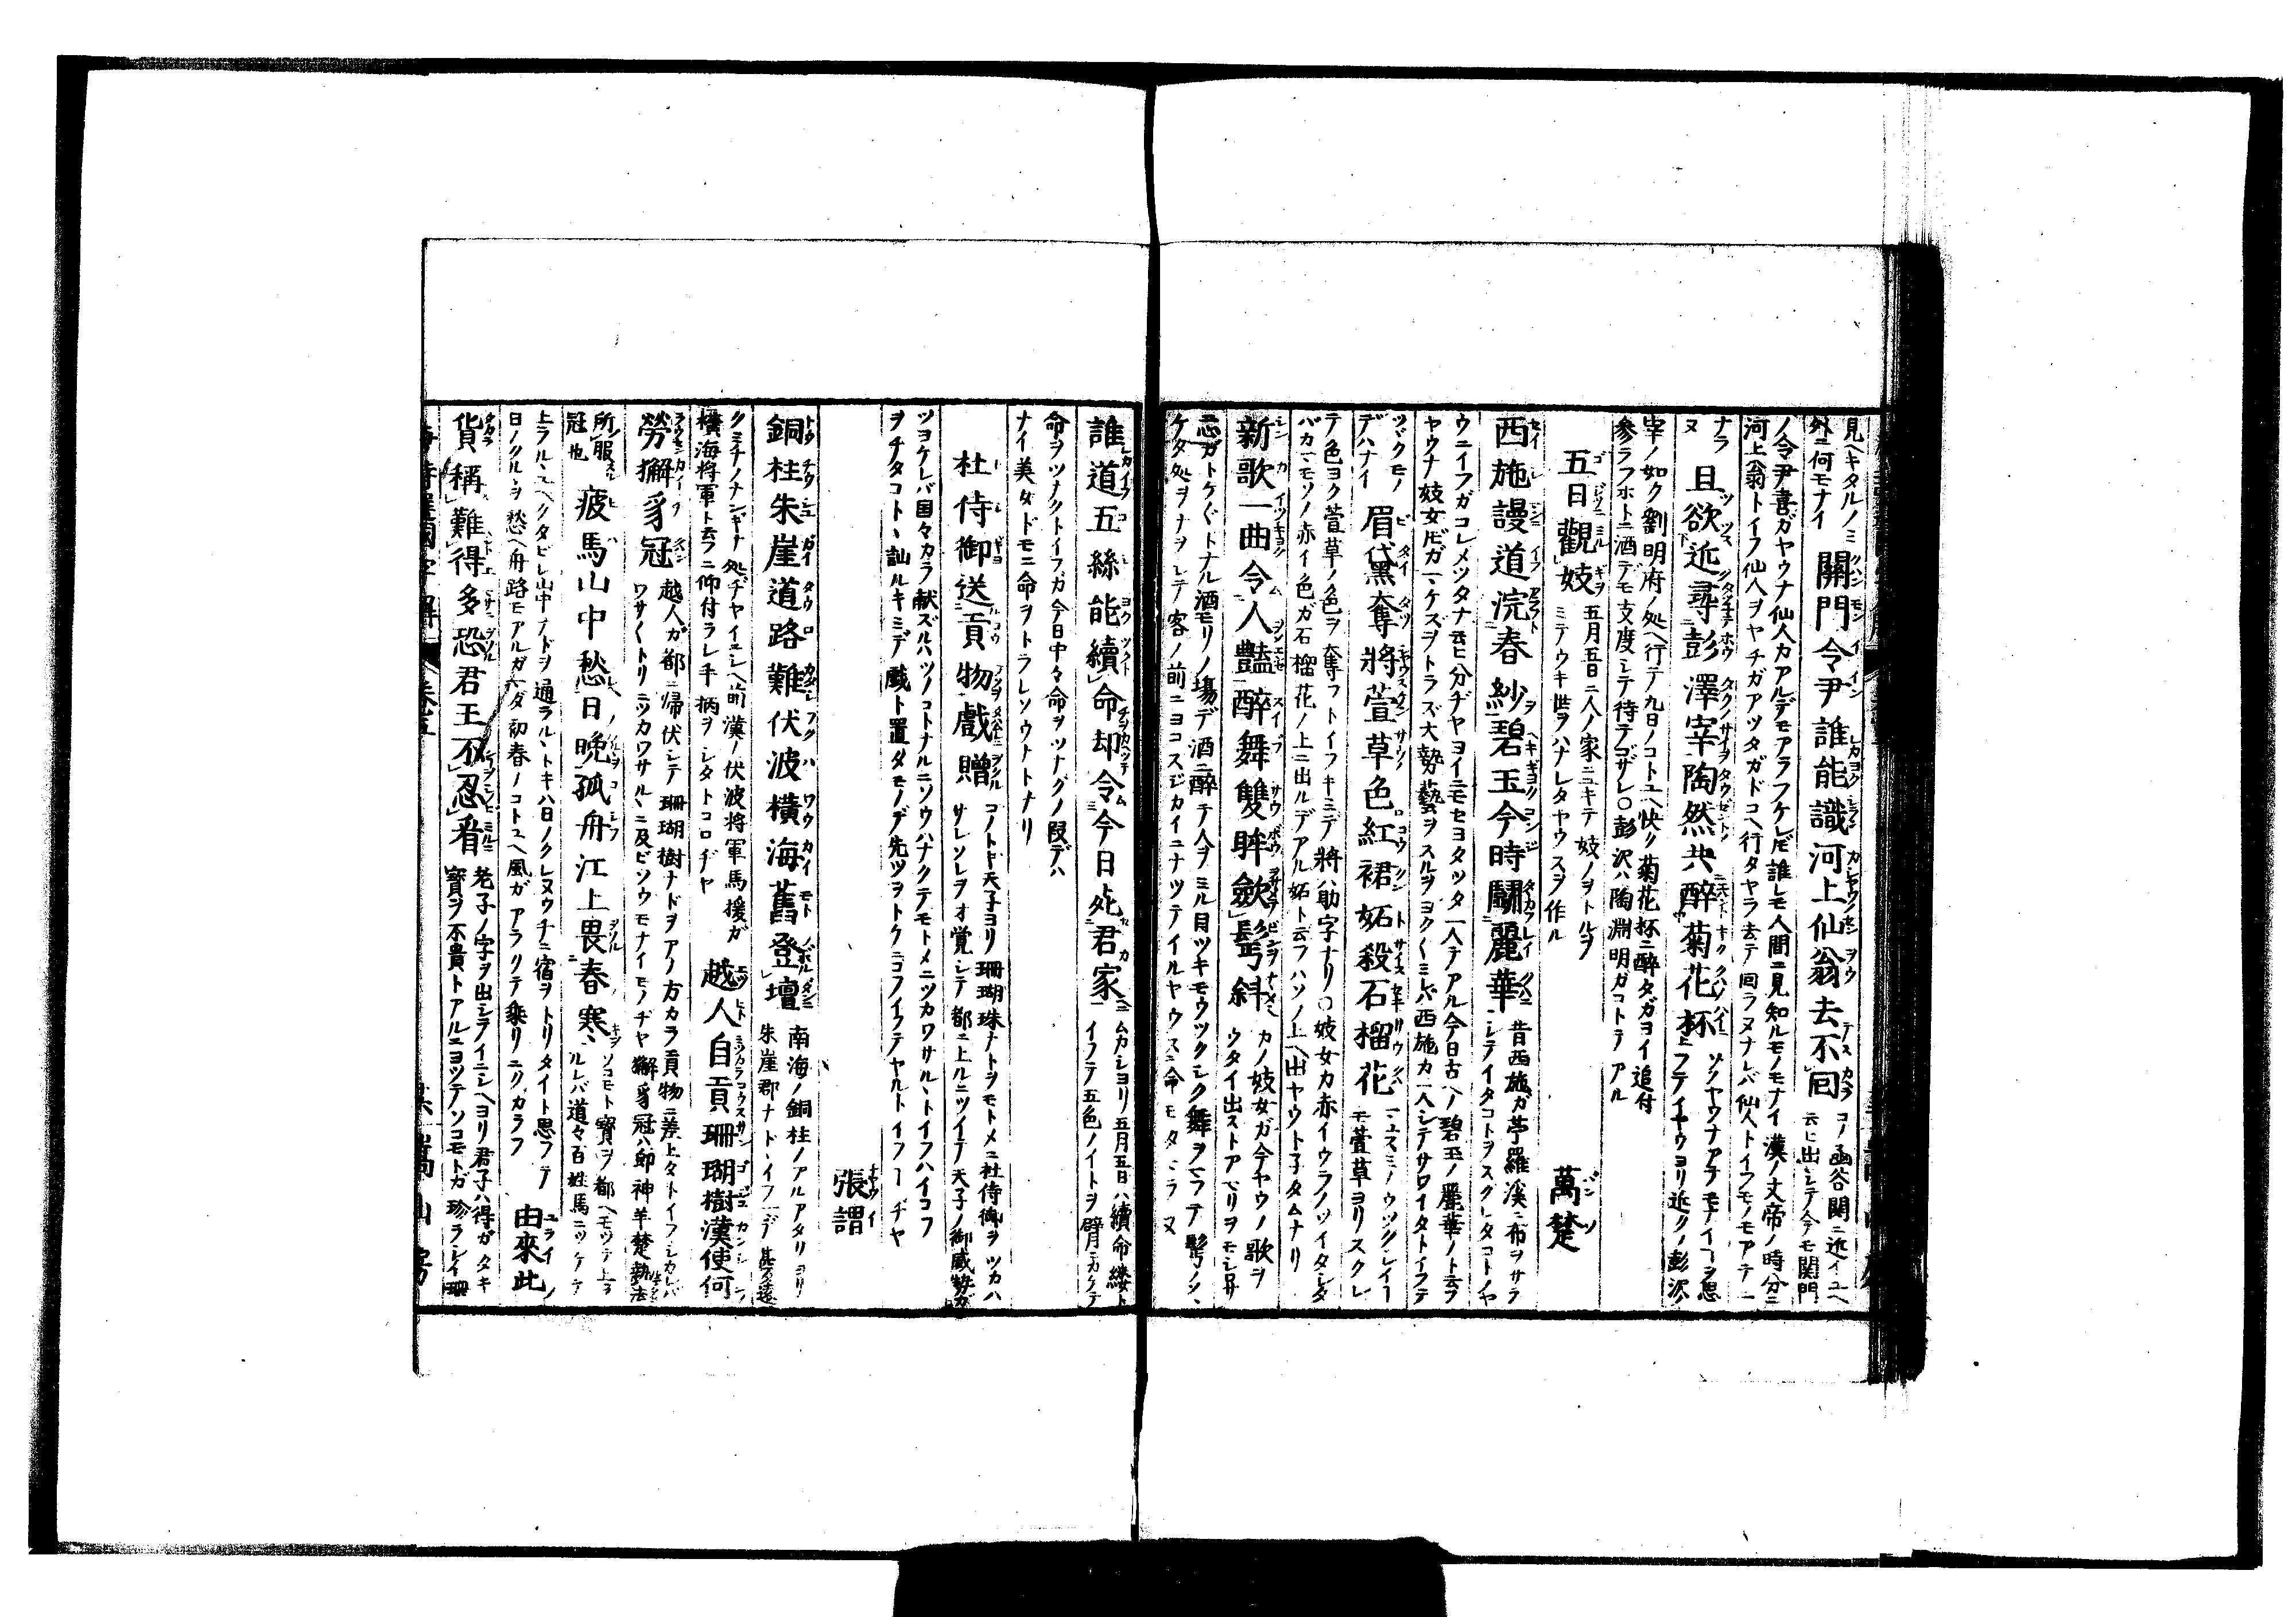 見ヘキタルノミ
外ニ何モナイ
關門令尹誰能識河上仙翁去不回
コノ函谷関ニ近イユヘ
云ヒ出シテ今デモ関門
ノ令尹喜ガヤウナ仙人カアルデモアラフケレ𪜈誰レモ人間ニ見知ルモノモナイ漢ノ文帝ノ時分ニ
河上翁トイフ仙人ヲヤチガアツタガドコヘ行タヤラ去テ回ラヌナレバ仙人トイフモノモアテニ
ナラ
ヌ
且欲近尋彭澤宰陶然共醉菊花杯
ソクヤウナアテモナイコヲ思
フテイヤウヨリ近クノ彭沢ノ
宰ノ如ク劉明府ノ処ヘ行テ九日ノコトユヘ快ク菊花杯ニ醉タガヨイ追付
参ラフホトニ酒デモ支度シテ待テゴザレ○彭沢ハ陶淵明ガコトテアル
五日觀妓
五月五日ニ人ノ家ニユキテ妓ノヲトルヲ
ミテウキ世ヲハナレタヤウスヲ作ル
萬楚
西施謾道浣春紗碧玉今時鬪麗華
昔西施ガ苧羅溪ニ布ヲサラ
シテイタコトヲスグレタコトノヤ
ウニイフガコレメツタナ云ヒ分ヂヤヨイニモセヨタツタ一人テアル今日古ヘノ碧玉ノ麗華ノト云フ
ヤウナ妓女𪜈ガ一ケスヲトラズ大勢藝ヲスルヲヨクヨクミレバ西施カ一人シテサワイタトイフテ
ツバクモノ
デハナイ
眉黛奪將萱草色紅裙妬殺石榴花
マユスミノウツクシイコ
モ萱草ヨリスクレ
テ色ヨク萱草ノ色ヲ奪フトイフキミデ將ハ助字ナリ○妓女カ赤イウラノツイタシタ
バカマソノ赤イ色ガ石榴花ノ上ニ出ルデアル妬ト云フハソノ上ヘ出ヤウト子タムナリ
新歌一曲令人艷醉舞雙眸斂鬂斜
カノ妓女ガ今ヤウノ歌ヲ
ウタイ出ストアマリヲモシロサ
ニ忘ガトケぐトナル酒モリノ場デ酒ニ醉テ人ヲミル目ツキモウツクシク舞ヲマフテ鬂ノソヽ
ケタ処ヲナヲシテ客ノ前ニヨコスジカイニナツテイルヤウスニ命モタマラヌ
誰道五絲能續命却令今日死君家
ムカシヨリ五月五日ハ續命縷ト
イフテ五色ノイトヲ臂ニカケテ
命ヲツナクトイフガ今日中々命ヲツナグノ段デハ
ナイ美女ドモニ命ヲトラレソウナトナリ
杜侍御送貢物戲贈
コノトキ天子ヨリ珊瑚珠ナトヲモトメニ杜侍御ヲツカハ
サレソレヲオ覚シテ都ニ上ルニツイテ天子ノ御威勢ガ
ツヨケレバ国々カラ献ズルハツノコトナルニソウハナクテモトメニツカワサルヽトイフハイコフ
ヲチタコトヽ訕ルキミデ戲ト置タモノデ先ツヲトクニコフイフテヤルトイフコヂヤ
張謂
銅柱朱崖道路難伏波橫海舊登壇
南海ノ銅柱ノアルアタリヨリ
朱崖郡ナトヽイフマデ甚タ遠
クミチノナンギナ処ヂヤイユヘ前漢ノ伏波将軍馬援ガ
橫海将軍ト云フニ仰付ラレ手柄ヲシタトコロヂヤ
越人自貢珊瑚樹漢使何
勞獬豸冠
越人ガ都ニ帰伏シテ珊瑚樹ナドヲアノ方カラ貢物ニ差上タトイフシカレバ
ワサくトリニツカワサルヽニ及ビソウモナイモノヂヤ獬豸冠ハ卽神羊楚執法
所服
冠也
疲馬山中愁日晚孤舟江上畏春寒
ソコモト寳ヲ都ヘモツテ上ラ
ルレバ道々百姓馬ニツケテ
上ラルヽユヘクタビレ山中ナドヲ通ラルヽトキハ日ノクレヌウチニ宿ヲトリタイト思フテ
日ノクルヽヲ愁ヘ舟路モアルガマダ初春ノコトユヘ風ガアラクテ乗リニクカラフ
由來此
貨稱難得多恐君王不忍看
老子ノ字ヲ出シテイニシヘヨリ君子ハ得ガタキ
寳ヲ不貴トアルニヨツテソコモトガ珍ラシイ珊